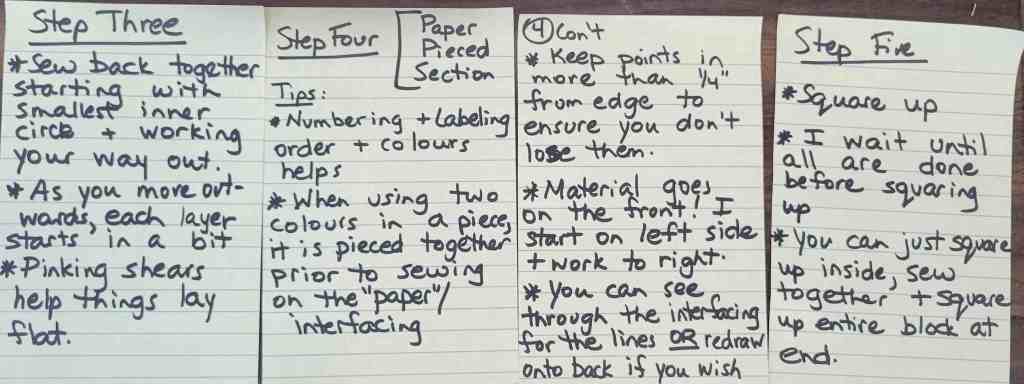 Step Three
* Sew back together
starting with
smallest inner
circle + working
your way out.
* As you move out-
wards, each layer
starts in a bit
* Pinking shears
help things lay
flat.
Step Four
Paper
Pieced
Section
Tips:
* Numbering + Labeling
order + colours
helps
* When using two
colours in a piece,
it is pieced together
prior to sewing
on the "paper"/
interfacing
④ Con't
* Keep points in
more than 1/4"
from edge to
ensure you don't
lose them.
* Material goes
on the front! I
start on left side
+ work to right.
* You can see
through the interfacing
for the lines OR redraw
onto back if you wish
Step Five
* Square up
* I wait until
all are done
before squaring
up
* You can just square
up inside, sew
together + square
up entire block at
end.